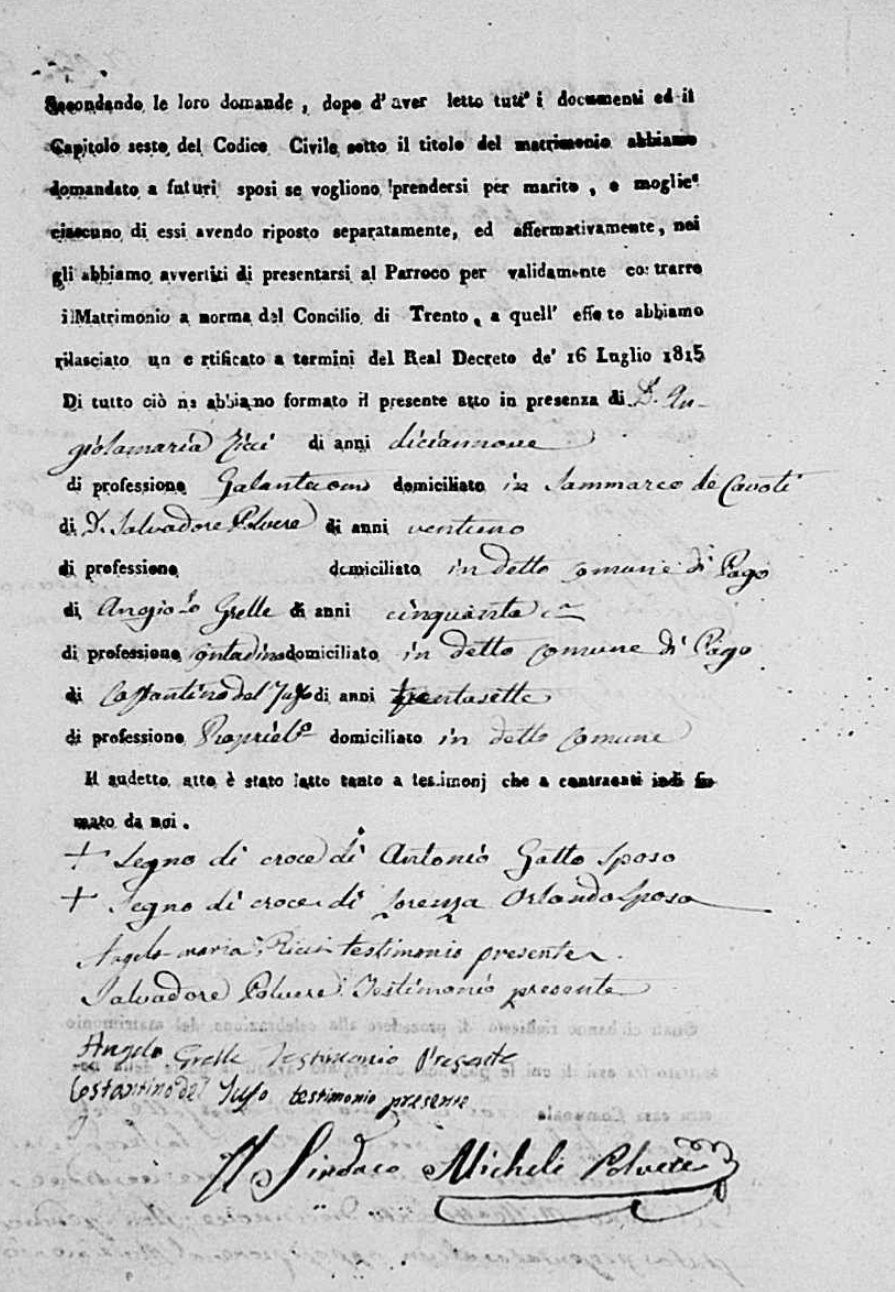 Secondando le loro domande, dopo d'aver letto tutt'i documenti ed il
Capitolo sesto del Codice Civile sotto il titolo del matrimonio abbiamo
domandato a futuri sposi se vogliono prendersi per marito, e moglie
ciascuno di essi avendo riposto separatamente, ed affermativamente, noi
gli abbiamo avvertiti di presentarsi al Parroco per validamente contrarre
il Matrimonio a norma del Concilio di Trento, a quell' effetto abbiamo
rilasciato un certificato a termini del Real Decreto de' 16 Luglio 1815
Di tutto ciò ne abbiamo formato il presente atto in presenza di D. An-
giolamaria Ricci di anni diciannove
di professione Galantuomo domiciliato in Sammarco de Cavoti
di D. Salvadore Polvere di anni ventuno
di professione domiciliato in detto comune di Pago
di Angiolo Grelle di anni cinquanta
di professione contadino domiciliato in detto comune di Pago
di Costantino del Juso di anni trentasette
di professione Propriet.o domiciliato in detto comune
Il sudetto atto è stato letto tanto a testimonj che a contraenti indi fir
mato da noi.
+ Segno di croce di Antonio Gatto Sposo
+ Segno di croce di Lorenza Orlando Sposa
Angelo maria Ricci testimonio presente
Salvadore Polvere Testimonio presente
Angelo Grelle Testimonio Presente
Costantino del Juso testimonio presente
Il Sindaco Michele Polvere